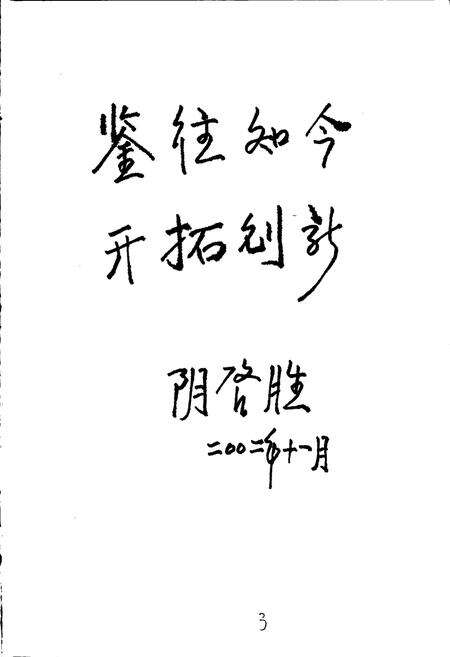 鉴往知今
开拓创新
阴启胜
二〇〇二年十一月
3